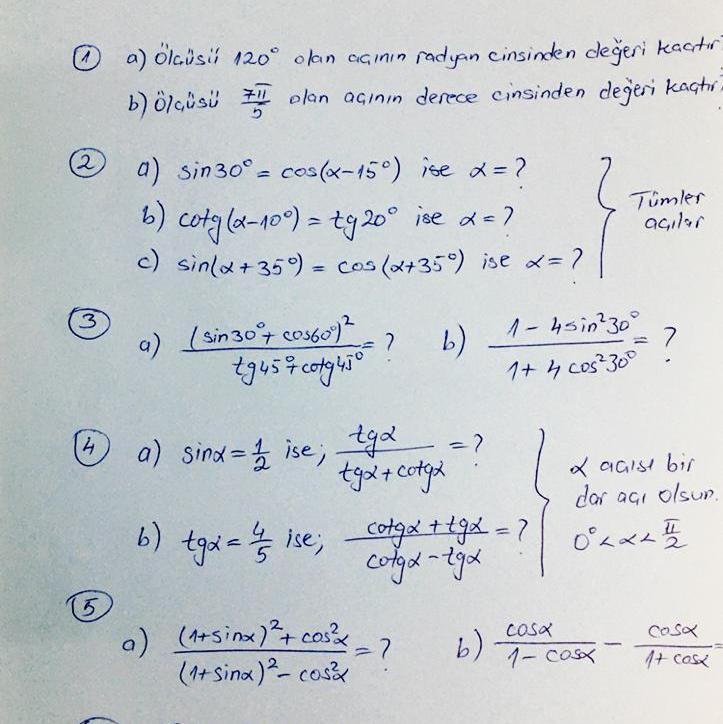 1 a) Ölçüsü 120° olan açının radyan cinsinden değeri kaçtır?
b) Ölçüsü 7π/5 olan açının derece cinsinden değeri kaçtır?
2 a) sin30° = cos(α-15°) ise α = ?
b) cotg(α-10°) = tg20° ise α = ?
c) sin(α+35°) = cos(α+35°) ise α = ?
Tümler
açılar
3 a) (sin30°+cos60°)²/(tg45°+cotg45°) = ? b) (1-4sin²30°)/(1+4cos²30°) = ?
4 a) sinα = 1/2 ise; tgα/(tgα+cotgα) = ?
b) tgα = 4/5 ise; (cotgα+tgα)/(cotgα-tgα) = ?
α açısı bir
dar açı olsun.
0° < α < π/2
5
a) ((1+sinα)²+cos²α)/((1+sinα)²-cos²α) = ? b) cosα/(1-cosα) - cosα/(1+cosα) =